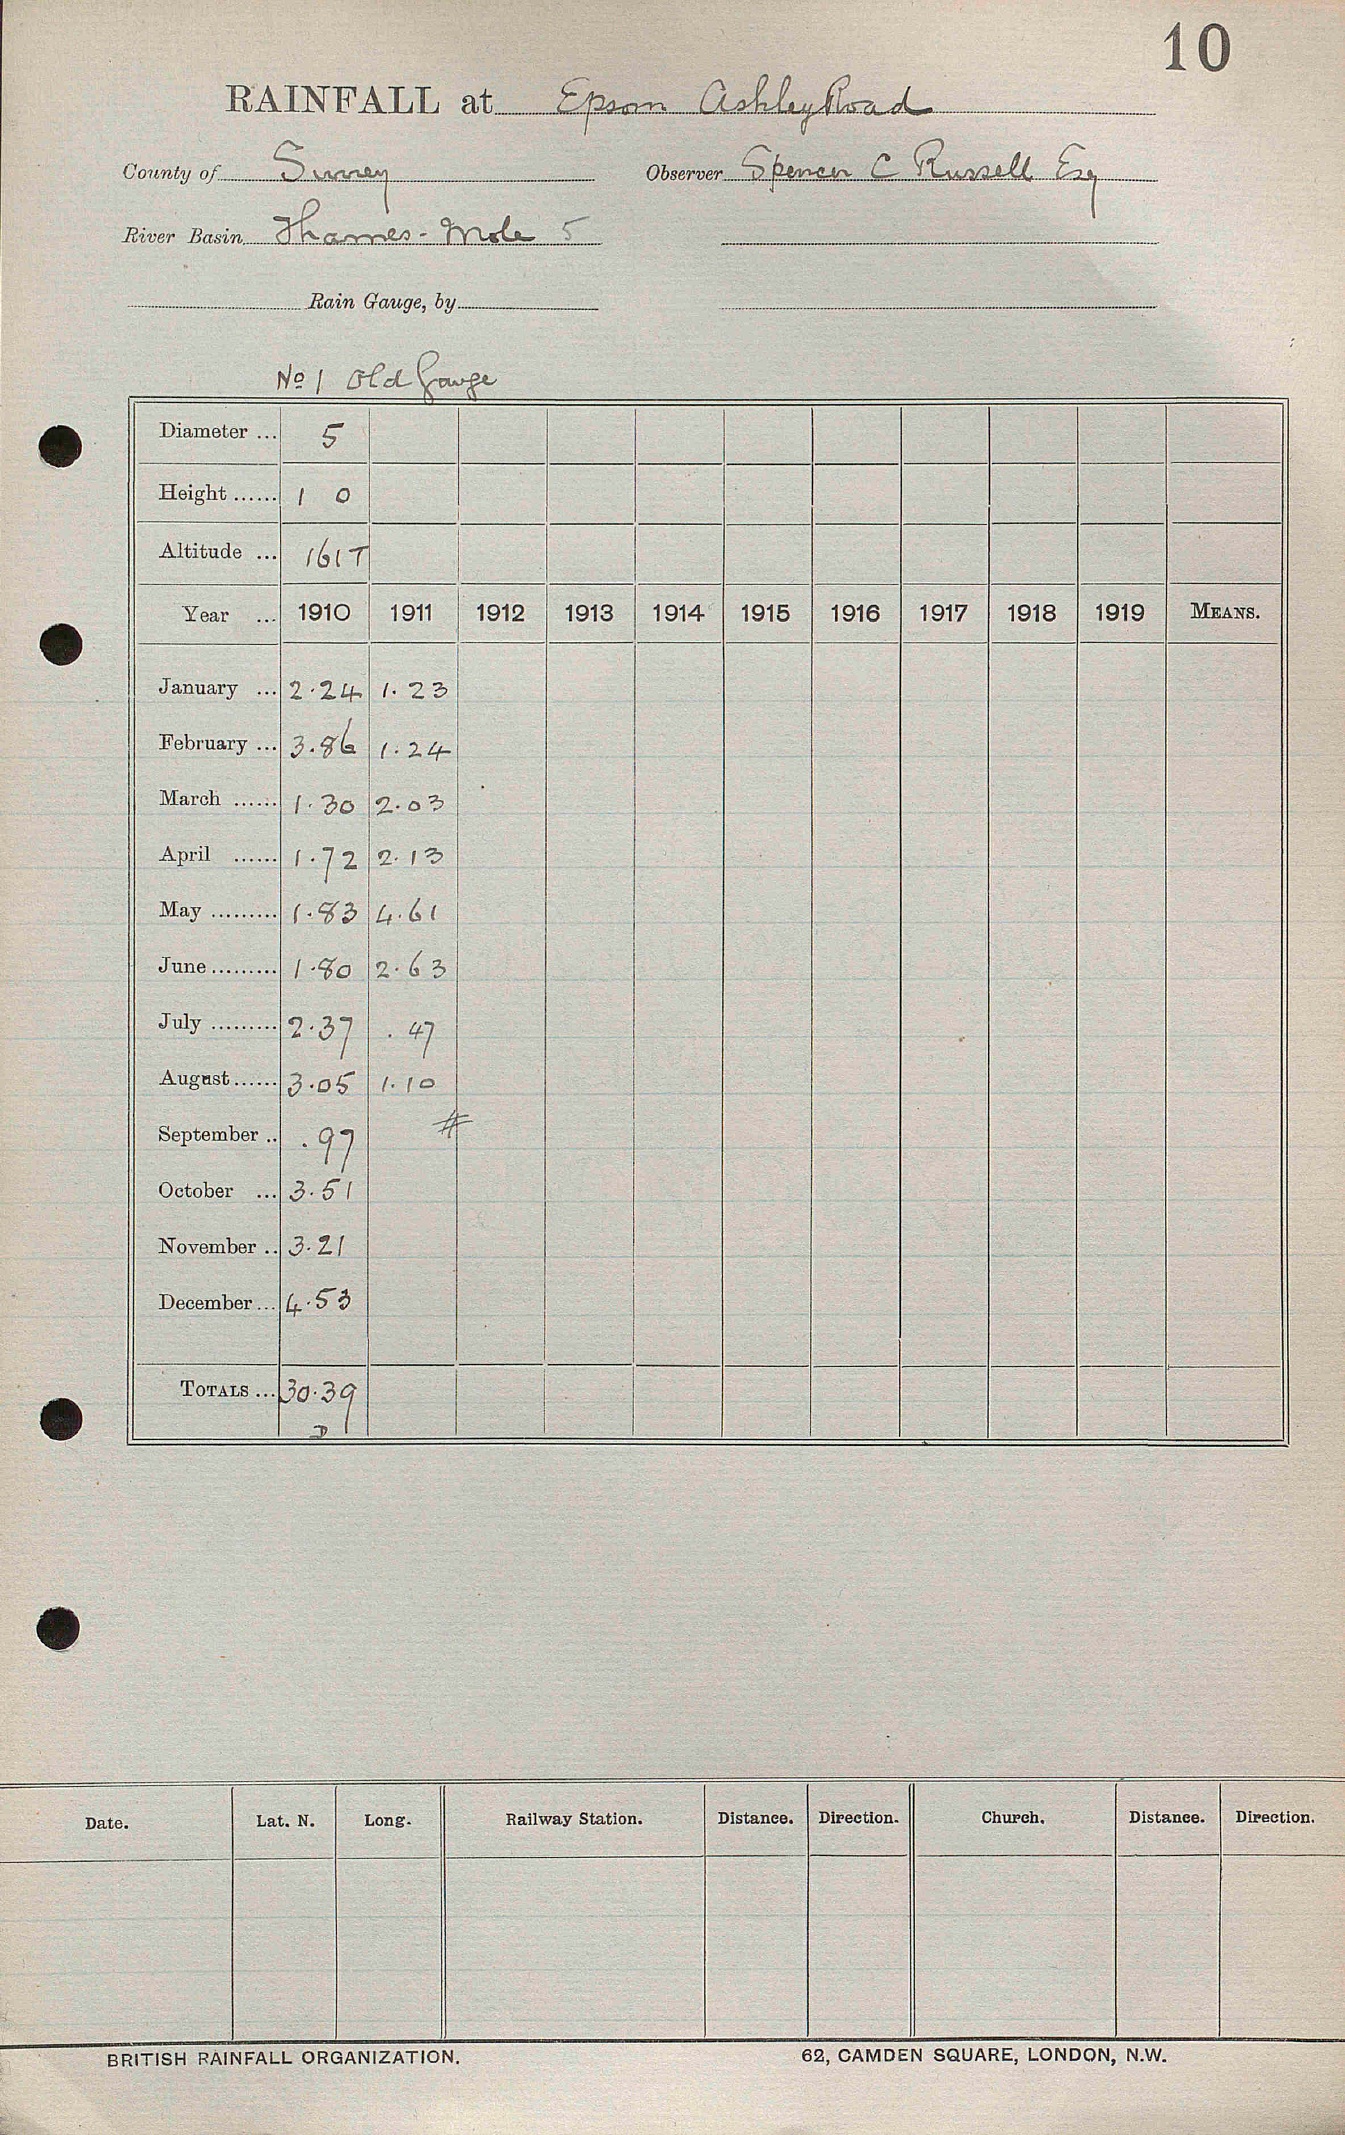 10
RAINFALL at Epsom Ashley Road
County of Surrey Observer Spencer C Russell Esq
River Basin Thames - Mole 5
Rain Gauge, by
No 1 Old Gauge
Diameter ... 5
Height ...... 1 0
Altitude ... 161T
Year ... 1910 1911 1912 1913 1914 1915 1916 1917 1918 1919 MEANS.
January ... 2.24 1.23
February ... 3.86 1.24
March ...... 1.30 2.03
April ...... 1.72 2.13
May ......... 1.83 4.61
June ......... 1.80 2.63
July ......... 2.37 .47
August ...... 3.05 1.10
September .. .97 #
October ... 3.51
November .. 3.21
December ... 4.53
TOTALS ... 30.39
D
Date. Lat. N. Long. Railway Station. Distance. Direction. Church. Distance. Direction.
BRITISH RAINFALL ORGANIZATION. 62, CAMDEN SQUARE, LONDON, N.W.